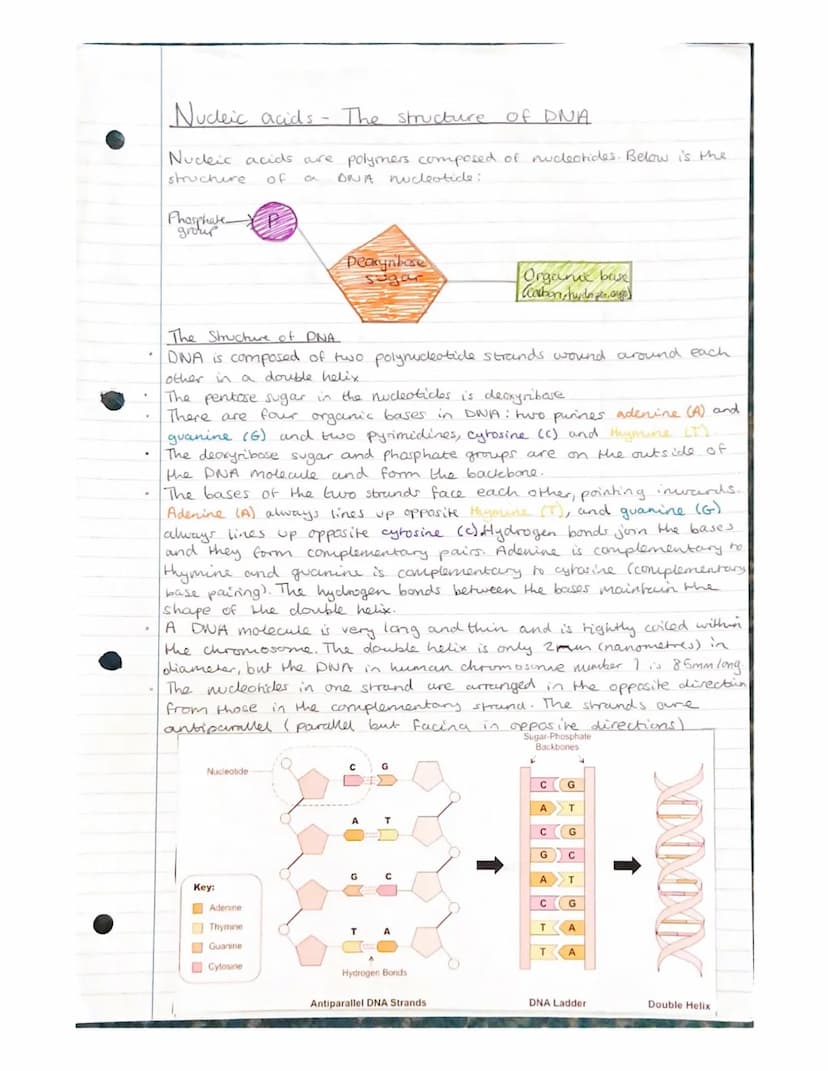 Nucleic acids - The structure of DNA
Nucleic acids are polymers composed of nucleotides. Below is the
structure of a DNA nucleotide:
Phosphate
group
P
Deoxyribose
sugar
Organic base
(carbon, hydrogen,
The Structure of DNA
• DNA is composed of two polynucleotide strands wound around each
other in a double helix
• The pentose sugar in the nucleotides is deoxyribose
• There are four organic bases in DNA: two purines adenine (A) and
guanine (G) and two pyrimidines, cytosine (C) and thymine (T)
• The deoxyribose sugar and phosphate groups are on the outside of
the DNA molecule and form the backbone.
• The bases of the two strands face each other, pointing inwards.
Adenine (A) always lines up opposite thymine (T), and guanine (G)
always lines up opposite cytosine (C). Hydrogen bonds join the bases
and they form complementary pairs. Adenine is complementary to
thymine and guanine is complementary to cytosine (complementary
base pairing). The hydrogen bonds between the bases maintain the
shape of the double helix.
• A DNA molecule is very long and thin and is tightly coiled within
the chromosome. The double helix is only 2nm (nanometres) in
diameter, but the DNA in human chromosome number 1 is 85mm long.
• The nucleotides in one strand are arranged in the opposite direction
from those in the complementary strand. The strands are
antiparallel (parallel but facing in opposite directions)
Nucleotide
C G
A T
G C
T A
Hydrogen Bonds
Key:
Adenine
Thymine
Guanine
Cytosine
Antiparallel DNA Strands
Sugar-Phosphate
Backbones
C G
A T
C G
G C
A T
C G
T A
T A
DNA Ladder
Double Helix